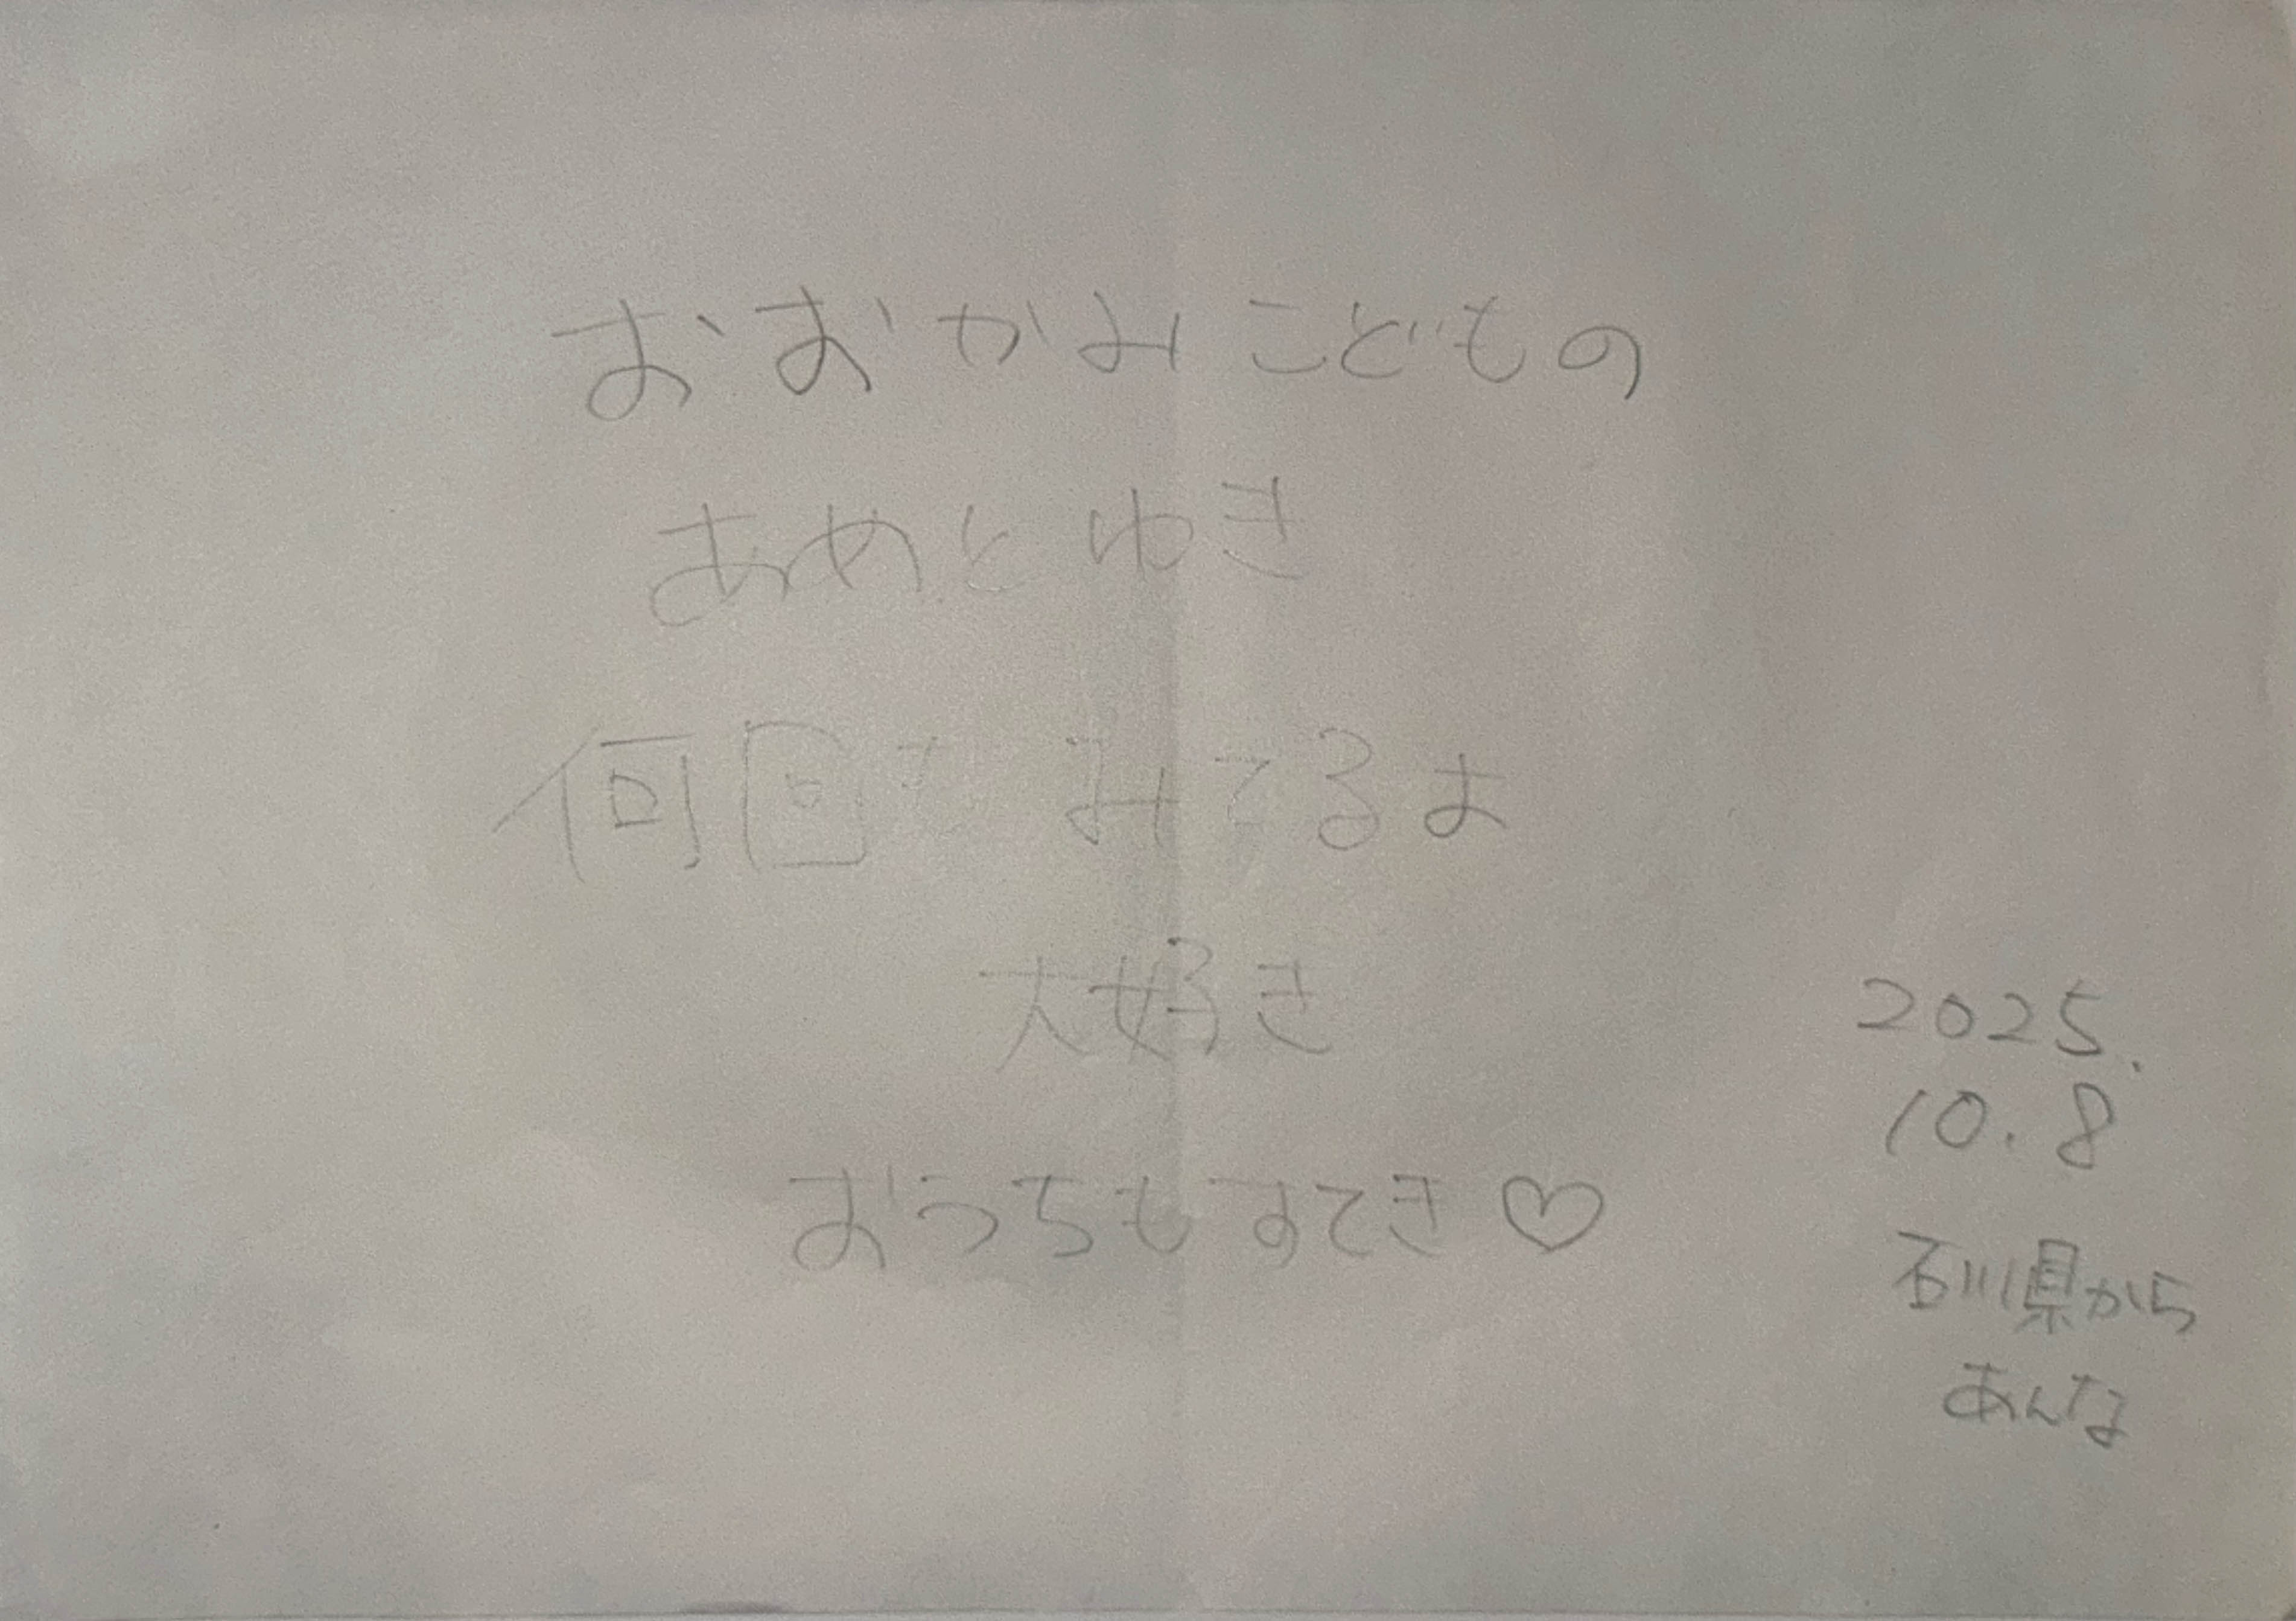 おおかみこどもの
あめとゆき
何回もみてるよ
大好き
おうちもすてき♡
2025.
10.8
石川県から
あんな